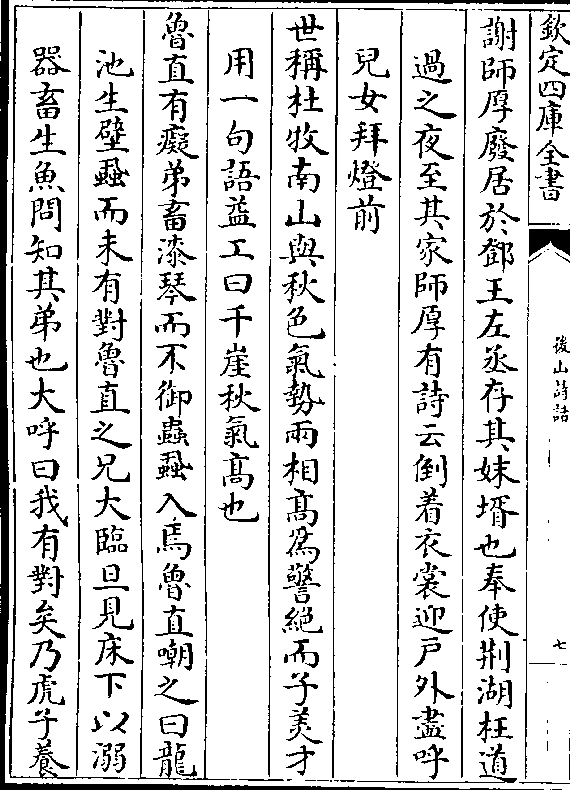 欽定四庫全書
後山詩話
七
謝師厚廢居於鄧王左丞存其妹壻也奉使荆湖枉道
過之夜至其家師厚有詩云倒着衣裳迎户外盡呼
兒女拜燈前
世稱杜牧南山與秋色氣勢兩相髙為警絶而子美才
用一句語益工曰千崖秋氣髙也
魯直有癡弟畜漆琴而不御蟲蝨入焉魯直嘲之曰龍
池生壁蝨而未有對魯直之兄大臨旦見床下以溺
器畜生魚問知其弟也大呼曰我有對矣乃虎子養